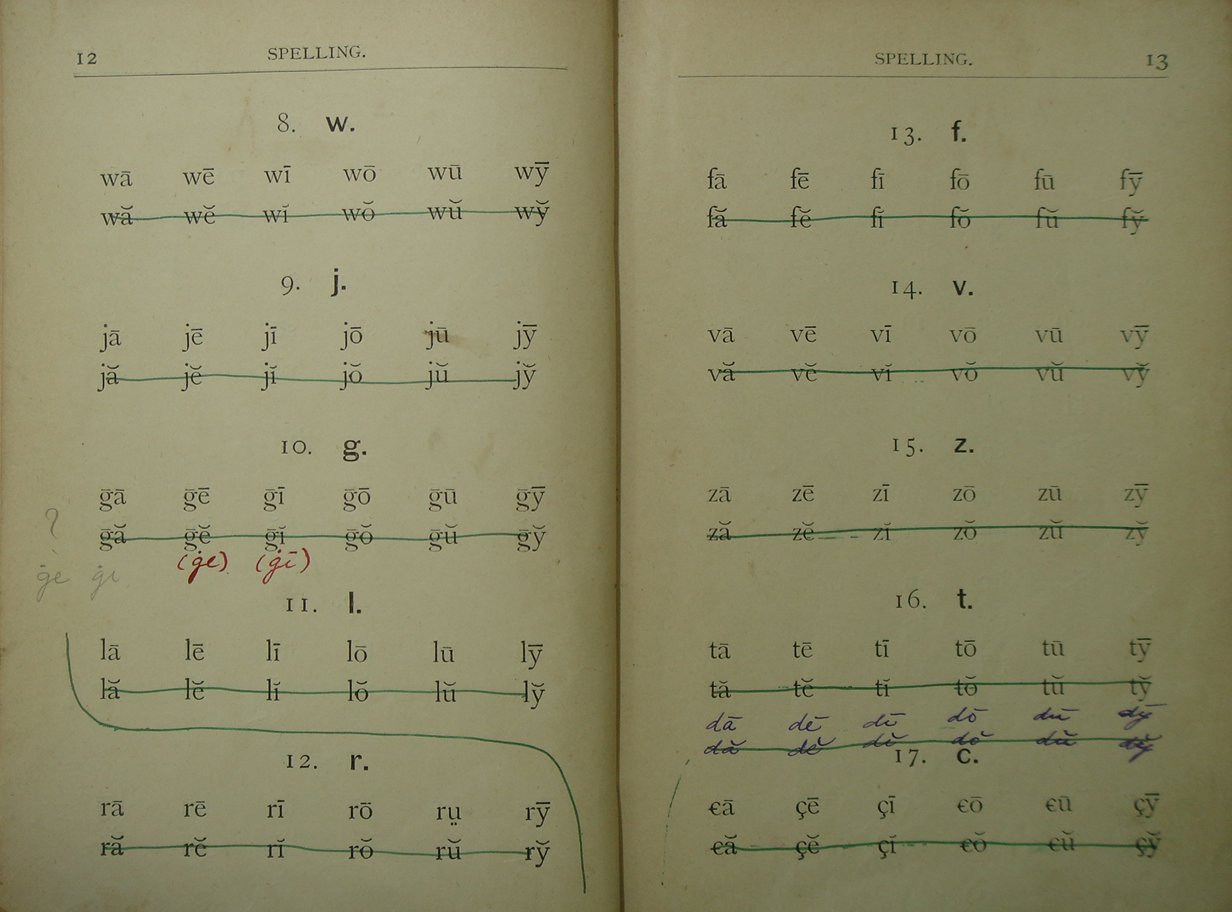 12 SPELLING.
8. w.
wā wē wī wō wū wȳ
wă wĕ wĭ wŏ wŭ wy̆
9. j.
jā jē jī jō jū jȳ
jă jĕ jĭ jŏ jŭ jy̆
10. g.
ḡā ḡē ḡī ḡō ḡū ḡȳ
?
ḡă ḡĕ ḡĭ ḡŏ ḡŭ ḡy̆
(ġe) (ġī)
ġe ġi
11. l.
lā lē lī lō lū lȳ
lă lĕ lĭ lŏ lŭ ly̆
12. r.
rā rē rī rō rṳ rȳ
ră rĕ rĭ rŏ rŭ ry̆
SPELLING. 13
13. f.
fā fē fī fō fū fȳ
fă fĕ fĭ fŏ fŭ fy̆
14. v.
vā vē vī vō vū vȳ
vă vĕ vĭ vŏ vŭ vy̆
15. z.
zā zē zī zō zū zȳ
ză zĕ zĭ zŏ zŭ zy̆
16. t.
tā tē tī tō tū tȳ
tă tĕ tĭ tŏ tŭ ty̆
dā dē dī dō dū dȳ
dă dĕ dĭ dŏ dŭ dy̆
17. c.
ꞓā çē çī ꞓō ꞓū çȳ
ꞓă çĕ çĭ ꞓŏ ꞓŭ çy̆